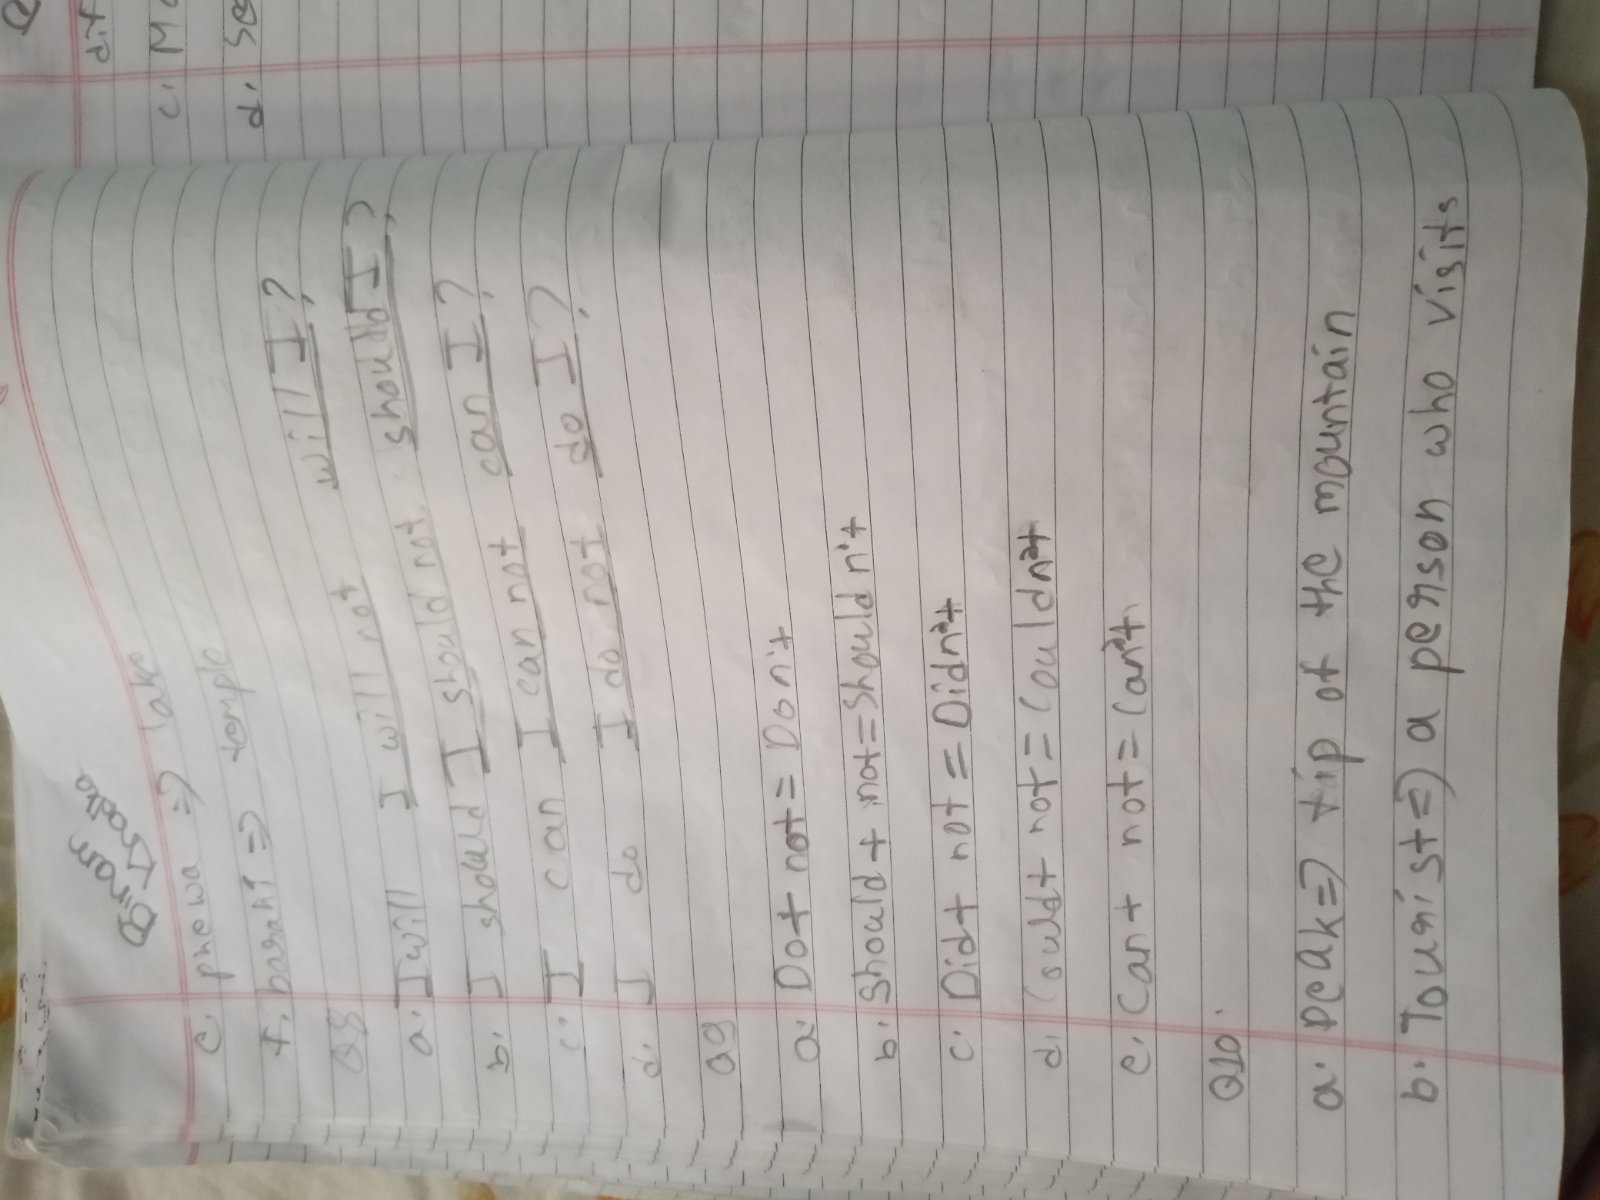 e. phewa => lake
f. barahi => temple
Q8
a. I will I will not will I?
b. I should I should not should I?
c. I can I can not can I?
d. I do I do not do I?
Q9
a. Do + not = Don't
b. Should + not = Should n't
c. Did + not = Didn't
d. Could + not = Couldn't
e. Can + not = Can't
Q10.
a. peak => tip of the mountain
b. Tourist => a person who visits
c. M
d. Se